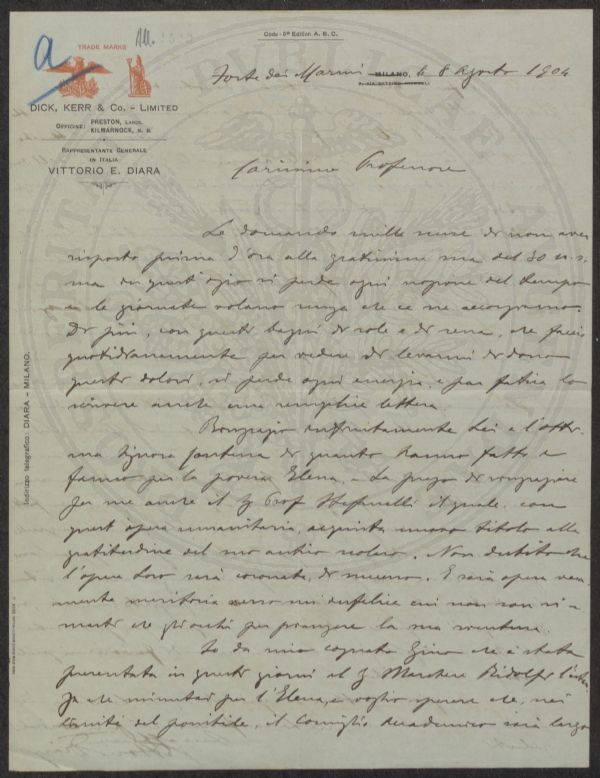 a
All.
Code - 5th Edition A. B. C.
TRADE MARKS
DICK, KERR & Co. - LIMITED
OFFICINE: PRESTON, LANCS.
KILMARNOCK, N. B.
RAPPRESENTANTE GENERALE
IN ITALIA
VITTORIO E. DIARA
Forte dei Marmi MILANO, li 8 Agosto 1904
Carissimo Professore
Le domando mille scuse di non aver
risposto prima d'ora alla gratissima sua del 30 u.s.
ma in quest'ozio si perde ogni nozione del tempo
e le giornate volano senza che ce ne accorgiamo.
Di più, con questi bagni di sole e di rena, che faccio
quotidianamente per vedere di levarmi di dosso
questi dolori, si perde ogni energia e par fatica lo
scrivere anche una semplice lettera.
Ringrazio infinitamente Lei e l'
Signora di quanto hanno fatto e
fanno per la povera Elena. La prego di ringraziare
per me anche il Prof Stefanelli il quale, con
quest'opera umanitaria, acquista nuovo titolo alla
gratitudine del suo antico scolaro. Non dubito che
l'opera Loro sarà coronata di successo. E sarà opera vera-
mente meritoria verso un'infelice cui non son ri-
masti che gli occhi per piangere la sua sventura.
So da mia cognata Gina che è stata
presentata in questi giorni al Marchese Ridolfi
per l'Elena, e voglio sperare che, nei
limiti del possibile, il Consiglio Accademico sarà largo
Indirizzo telegrafico: DIARA - MILANO.